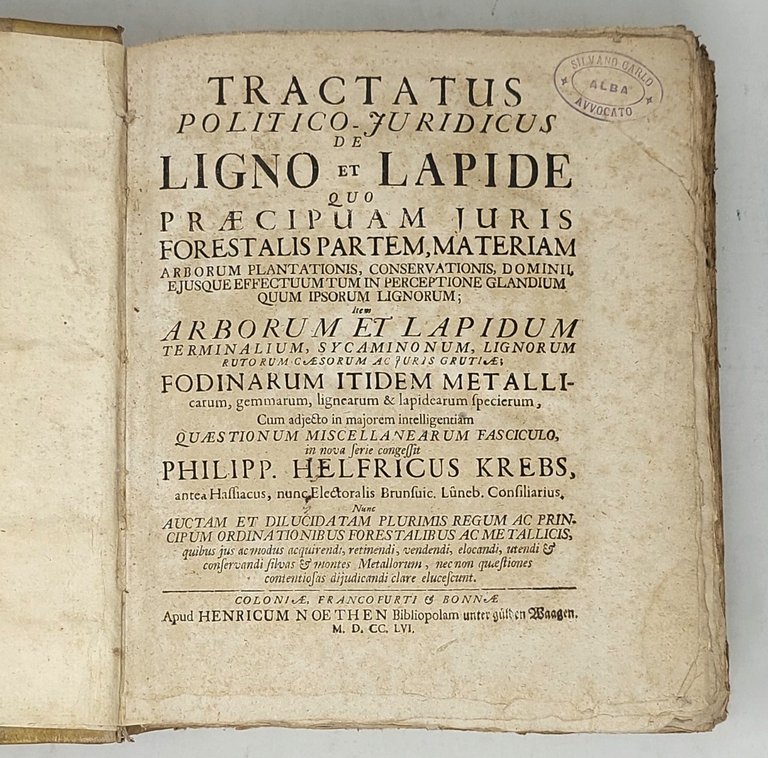 TRACTATUS
POLITICO-JURIDICUS
DE
LIGNO ET LAPIDE
QUO
PRÆCIPUAM JURIS
FORESTALIS PARTEM, MATERIAM
ARBORUM PLANTATIONIS, CONSERVATIONIS, DOMINII,
EJUSQUE EFFECTUUM TUM IN PERCEPTIONE GLANDIUM
QUUM IPSORUM LIGNORUM;
Item
ARBORUM ET LAPIDUM
TERMINALIUM, SYCAMINONUM, LIGNORUM
RUTORUM CÆSORUM AC JURIS GRUTIÆ;
FODINARUM ITIDEM METALLI-
carum, gemmarum, lignearum & lapidearum ſpecierum,
Cum adjecto in majorem intelligentiam
QUÆSTIONUM MISCELLANEARUM FASCICULO,
in nova ſerie congeſſit
PHILIPP. HELFRICUS KREBS,
antea Haſſiacus, nunc Electoralis Brunſuic. Lûneb. Conſiliarius.
Nunc
AUCTAM ET DILUCIDATAM PLURIMIS REGUM AC PRIN-
CIPUM ORDINATIONIBUS FORESTALIBUS AC METALLICIS,
quibus jus ac modus acquirendi, retinendi, vendendi, elocandi, utendi &
conſervandi ſilvas & montes Metallorum, nec non quæſtiones
contentioſas dijudicandi clare eluceſcunt.
COLONIÆ, FRANCOFURTI & BONNÆ
Apud HENRICUM NOETHEN Bibliopolam unter gülden Waagen.
M. D. CC. LVI.
SILVANO CARLO
ALBA
AVVOCATO